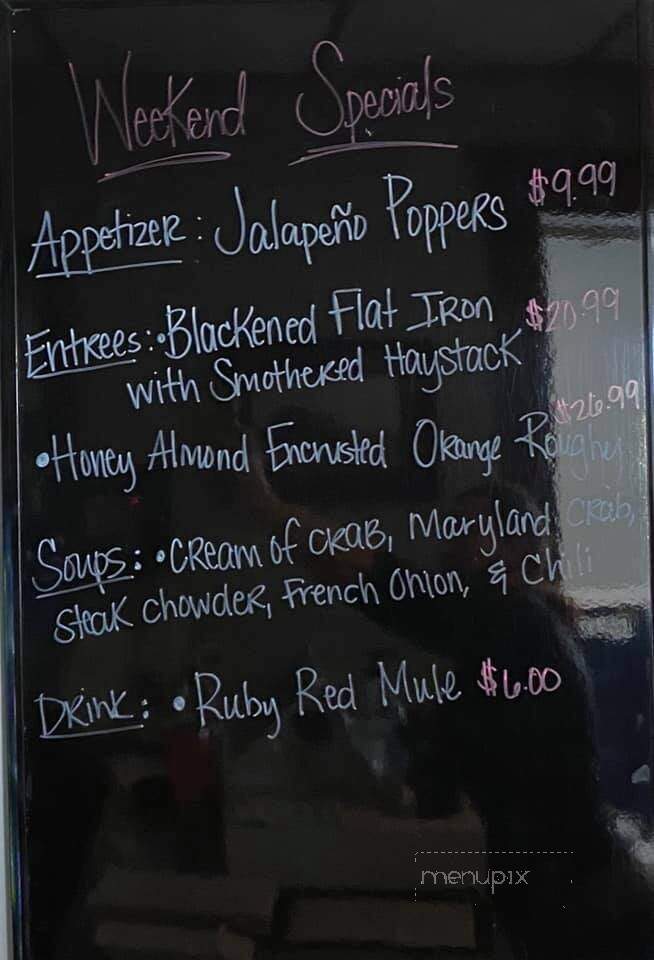 Weekend Specials
Appetizer: Jalapeño Poppers $9.99
Entrees: •Blackened Flat Iron $20.99
with Smothered Haystack
$26.99
•Honey Almond Encrusted Orange Roughy
Soups: •Cream of Crab, Maryland Crab,
Steak Chowder, French Onion, & Chili
Drink: •Ruby Red Mule $6.00
menupix